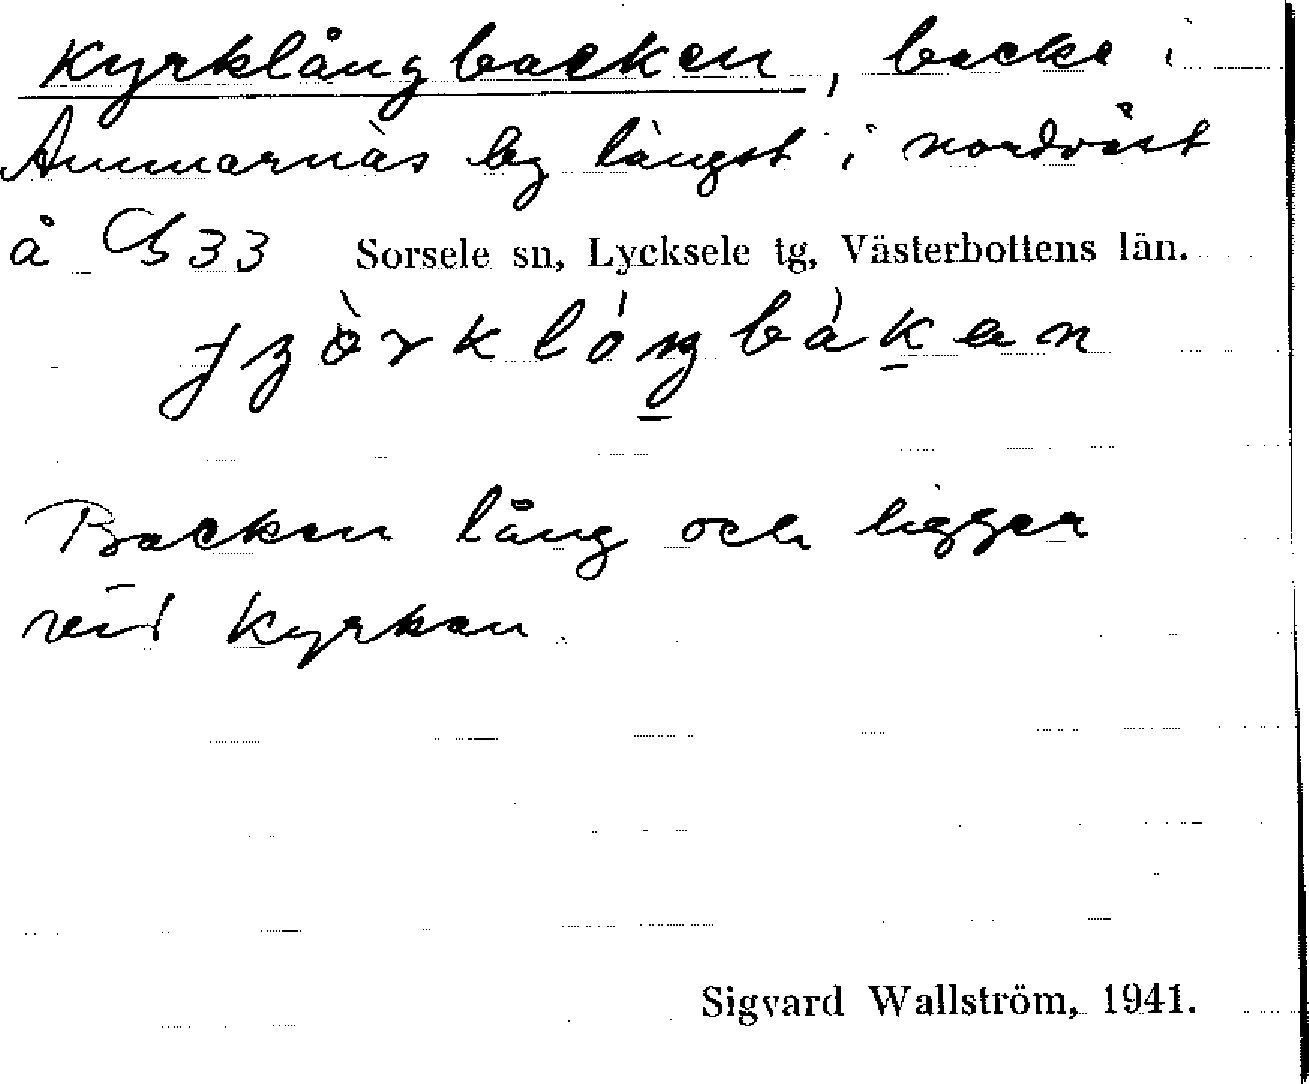 Kyrklångbacken, backe i
Ammarnäs by längst i nordväst
å 33 Sorsele sn, Lycksele tg, Västerbottens län.
Backen lång och ligger
vid kyrkan.
Sigvard Wallström, 1941.